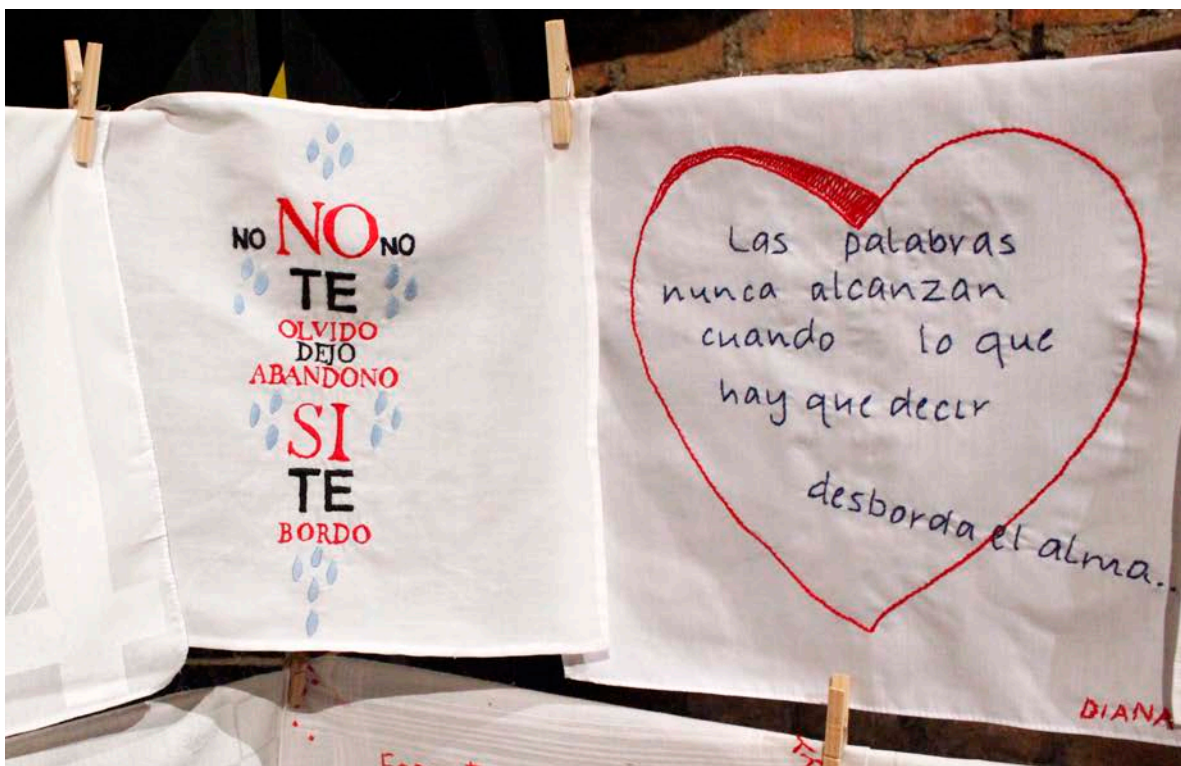 NO NO NO
TE
OLVIDO
DEJO
ABANDONO
SI
TE
BORDO
Las palabras
nunca alcanzan
cuando lo que
hay que decir
desborda el alma..
DIANA